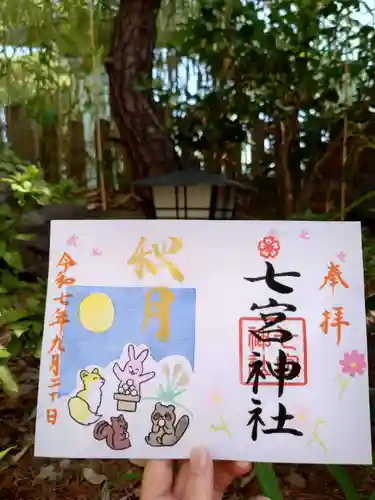 奉拝
七宮神社
秋月
令和七年九月二十日